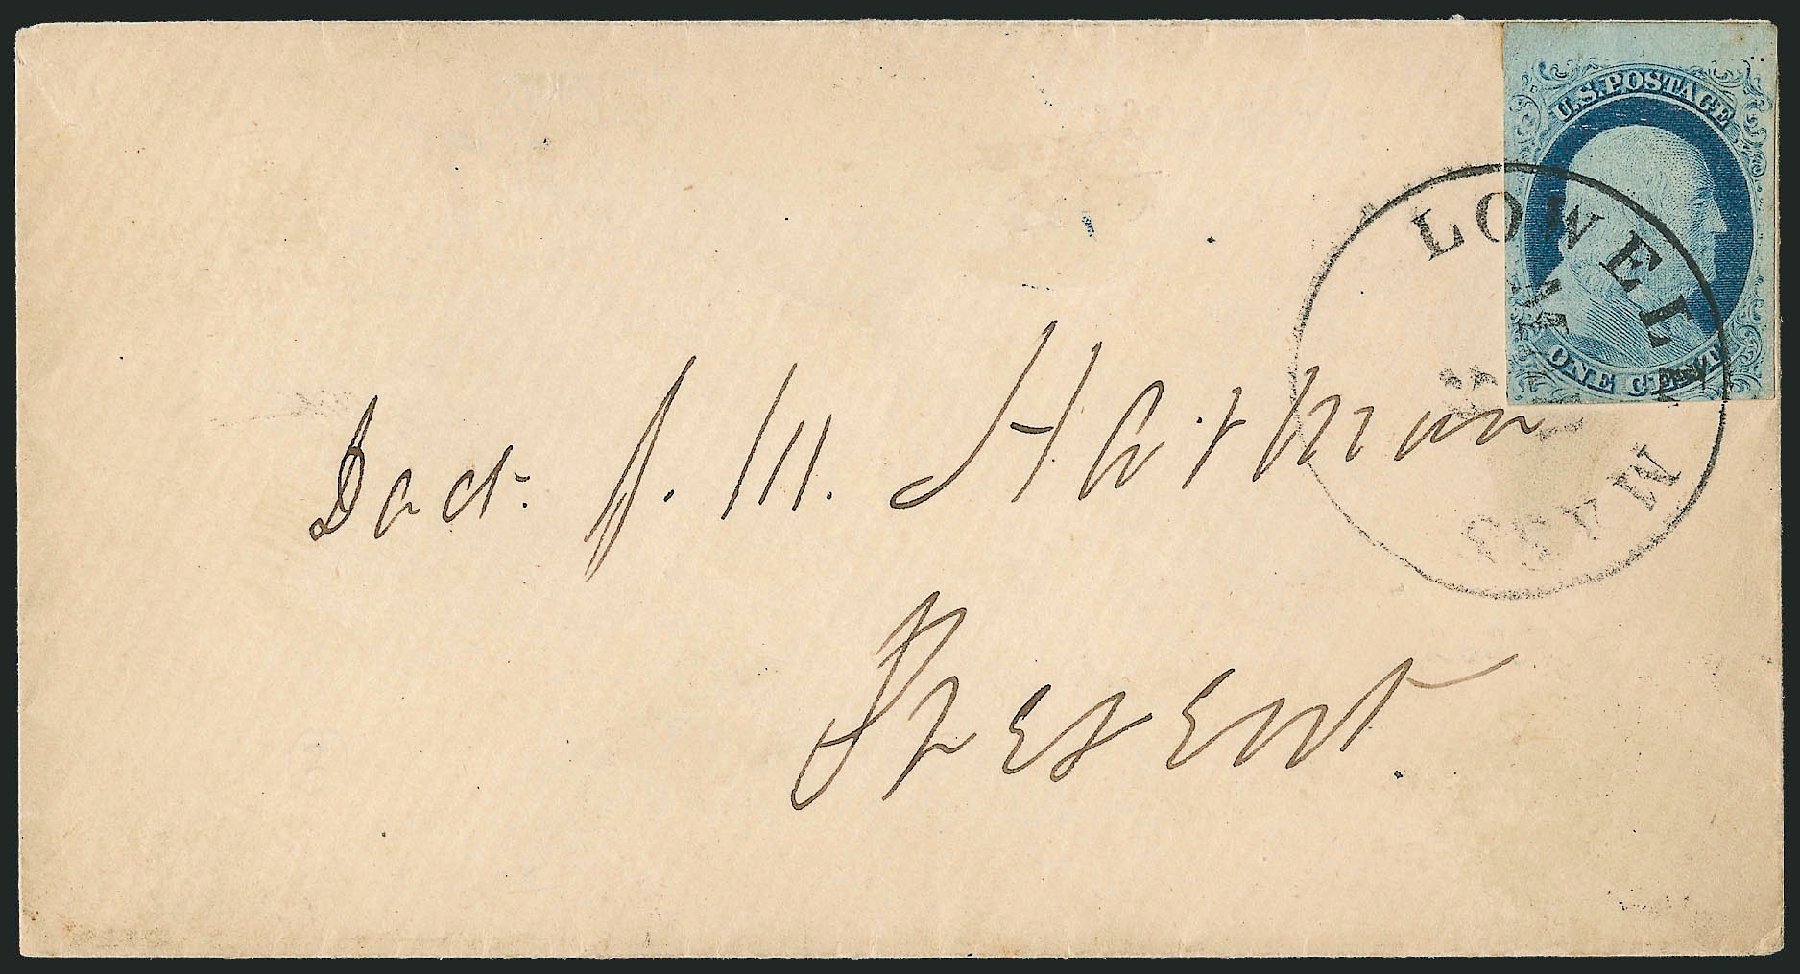 U.S. POSTAGE
ONE CENT
LOWELL
MASS
Doct. J. M. Harmon
Present.